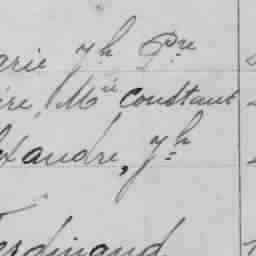 arie Jh Pre
ire, Mie Constant
exandre, Jh
Ferdinand